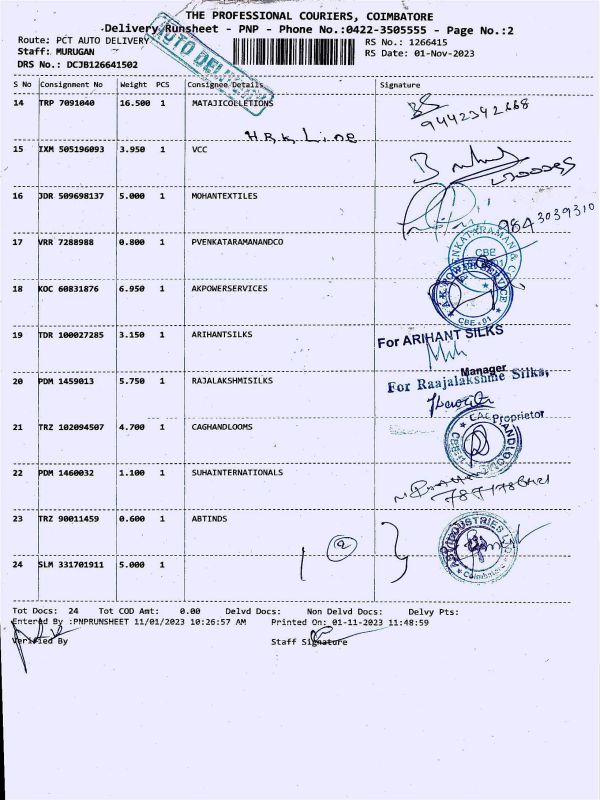 THE PROFESSIONAL COURIERS, COIMBATORE
Delivery Runsheet - PNP - Phone No.:0422-3505555 - Page No.:2
Route: PCT AUTO DELIVERY
RS No.: 1266415
Staff: MURUGAN
RS Date: 01-Nov-2023
DRS No.: DCJB126641502
AUTO DELIVERY
S No Consignment No Weight PCS Consignee Details Signature
14 TRP 7091040 16.500 1 MATAJICOLLETIONS
9442342668
H.B.K Line
15 IXM 505196093 3.950 1 VCC
16 JDR 509698137 5.000 1 MOHANTEXTILES
9843039310
17 VRR 7288988 0.800 1 PVENKATARAMANANDCO
CBE
18 KOC 60831876 6.950 1 AKPOWERSERVICES
A.K.POWER SERVICE
CBE-01
19 TDR 100027285 3.150 1 ARIHANTSILKS
For ARIHANT SILKS
Manager
20 PDM 1459013 5.750 1 RAJALAKSHMISILKS
For Raajalakshme Silks,
Proprietor
21 TRZ 102094507 4.700 1 CAGHANDLOOMS
22 PDM 1460032 1.100 1 SUHAINTERNATIONALS
23 TRZ 90011459 0.600 1 ABTINDS
2
24 SLM 331701911 5.000 1
Coimbatore
Tot Docs: 24 Tot COD Amt: 0.00 Delvd Docs: Non Delvd Docs: Delvy Pts:
Entered By :PNPRUNSHEET 11/01/2023 10:26:57 AM Printed On: 01-11-2023 11:48:59
Verified By Staff Signature